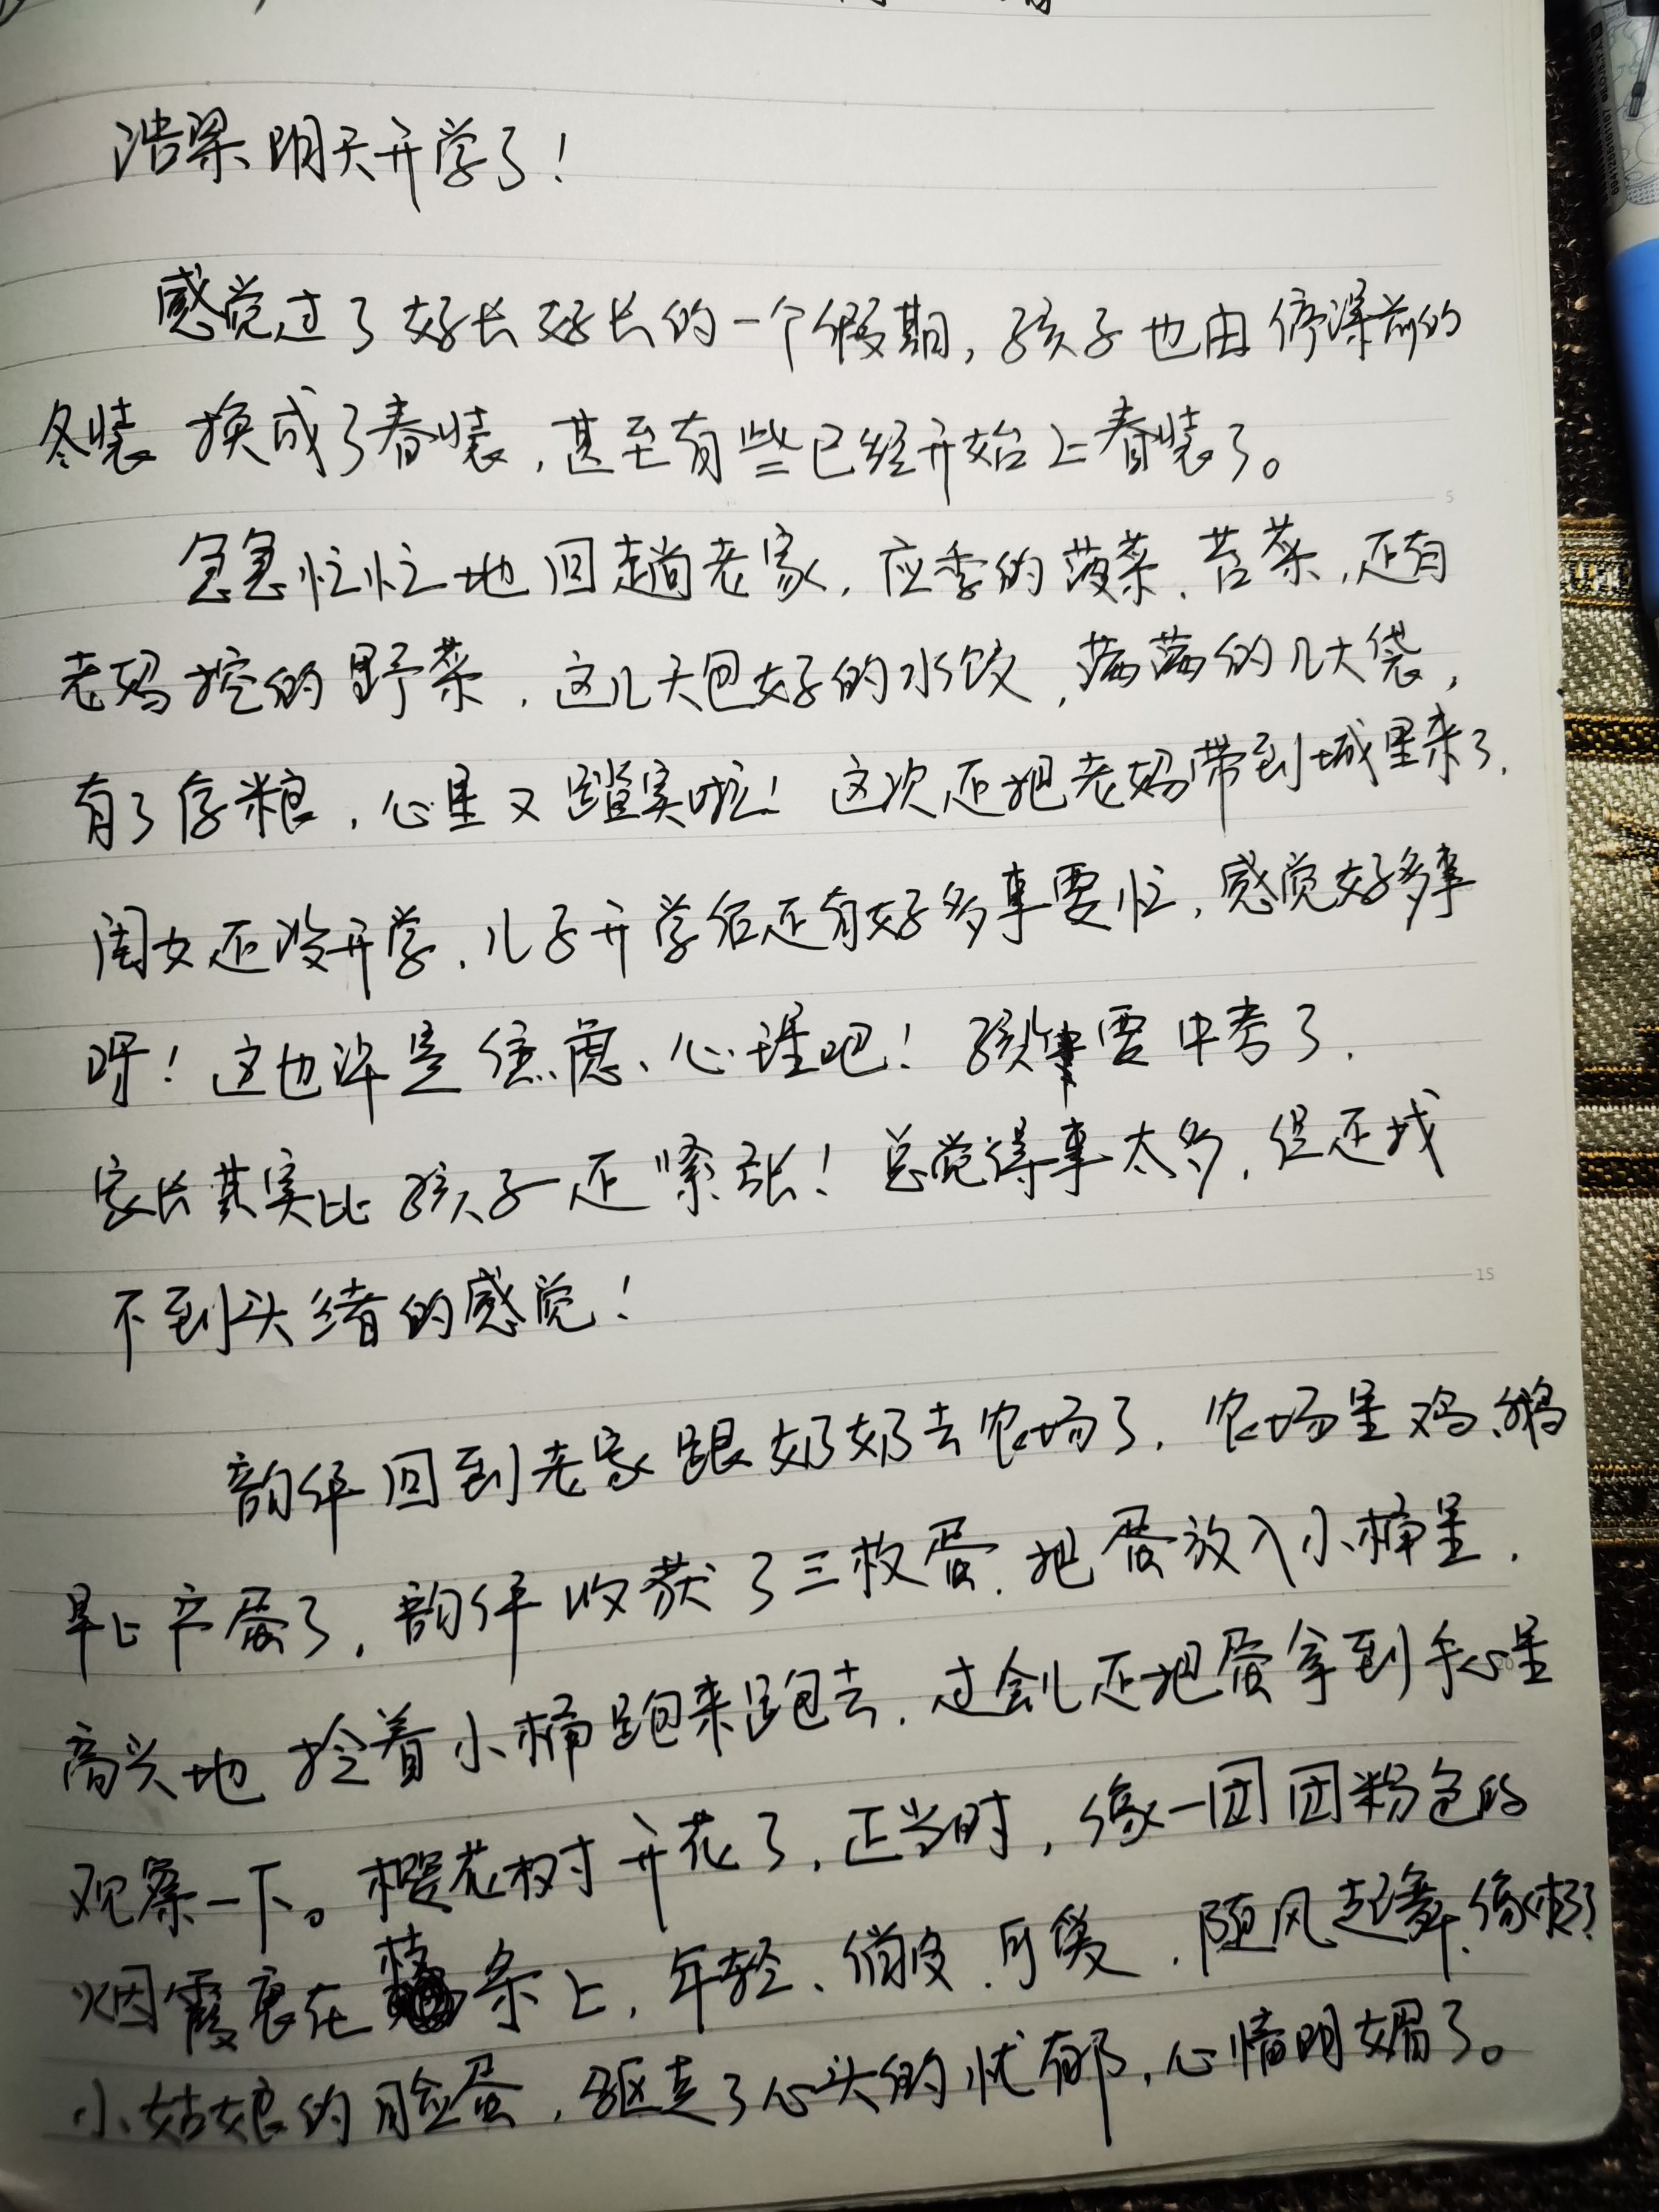 浩梁明天开学了！
感觉过了好长好长的一个假期，孩子也由停课前的
冬装换成了春装，甚至有些已经开始上春装了。
急急忙忙地回趟老家，应季的菠菜、苔菜，还有
老妈挖的野菜，这几天包好的水饺，满满的几大袋，
有了存粮，心里又踏实啦！这次还把老妈带到城里来了，
闺女还没开学，儿子开学后还有好多事要忙，感觉好多事
呀！这也许是焦虑、心理吧！孩快要中考了，
家长其实比孩子还紧张！总觉得事太多，但还找
不到头绪的感觉！
韵伊回到老家跟奶奶去农场了，农场里鸡、鹅
早上产蛋了，韵伊收获了三枚蛋，把蛋放入小桶里，
高兴地拎着小桶跑来跑去，过会儿还把蛋拿到手心里
观察一下。樱花树开花了，正当时，像一团团粉色的
烟霞裹在枝条上，年轻、俏皮、可爱，随风起舞，像
小姑娘的脸蛋，驱走了心头的忧郁，心情明媚了。